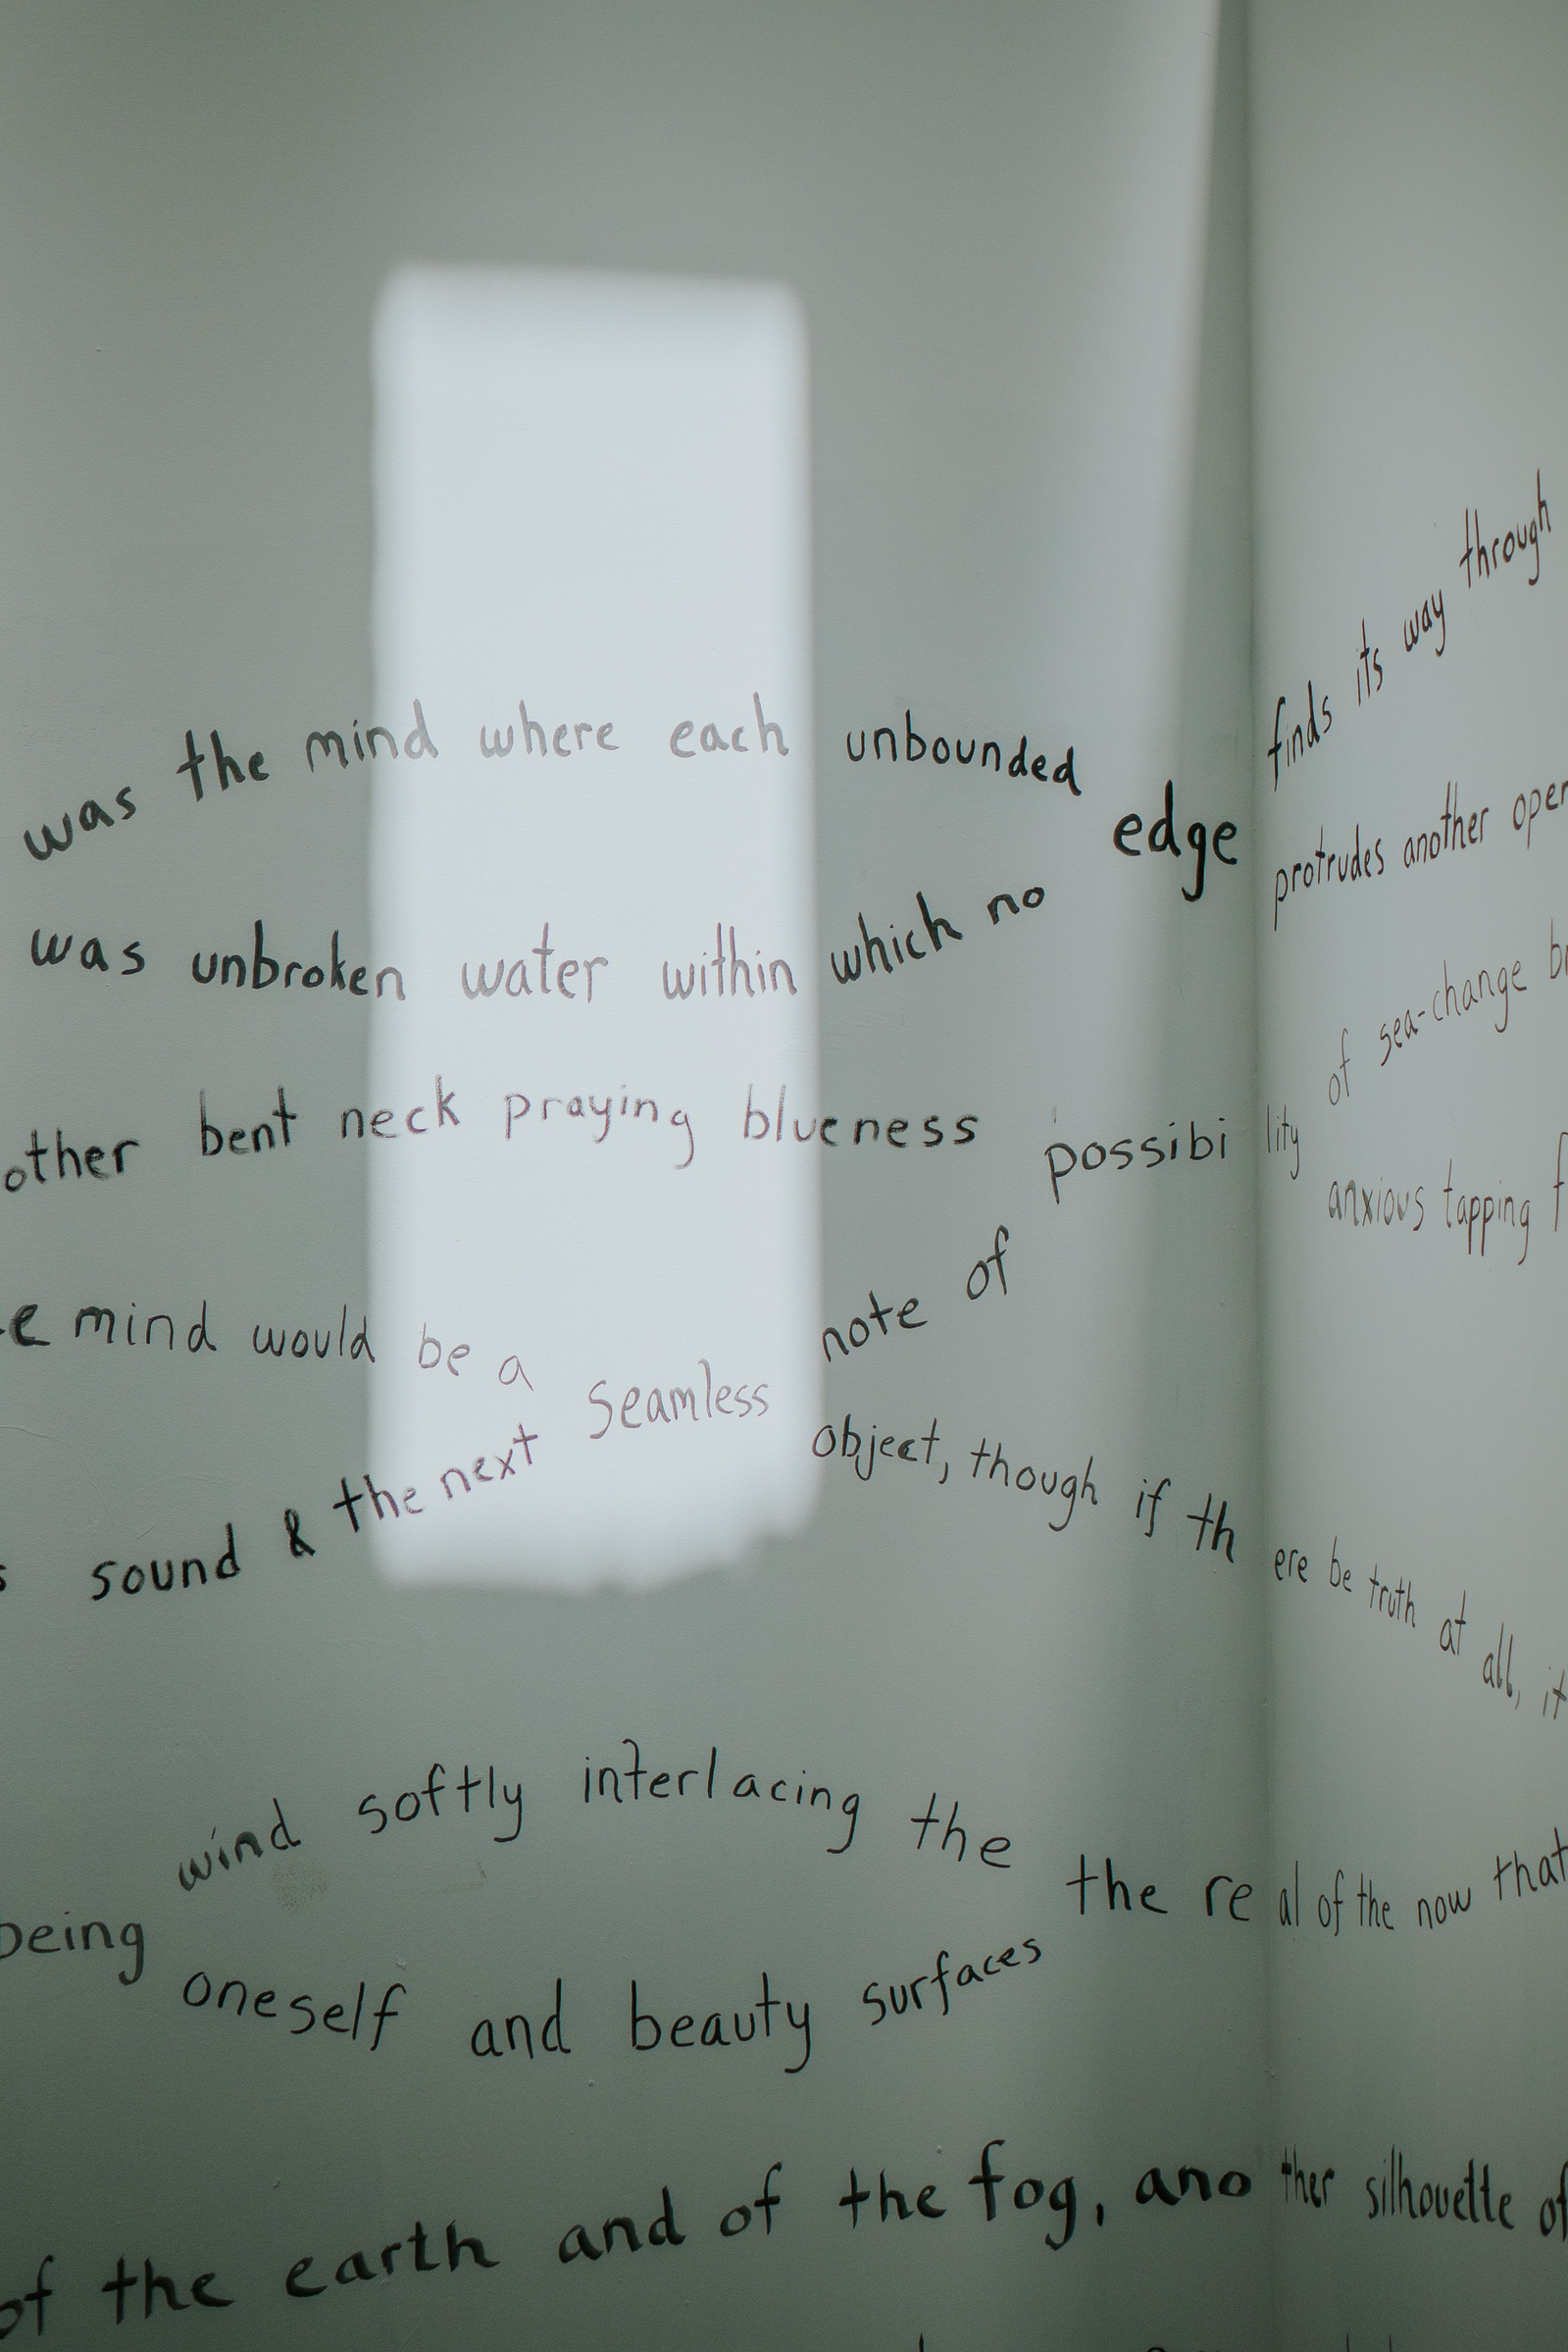 was the mind where each unbounded edge finds its way through
was unbroken water within which no protrudes another
other bent neck praying blueness possibility of sea-change
mind would be a seamless note of anxious tapping
sound & the next object, though if there be truth at all, it
wind softly interlacing the the real of the now that
being oneself and beauty surfaces
of the earth and of the fog, another silhouette of